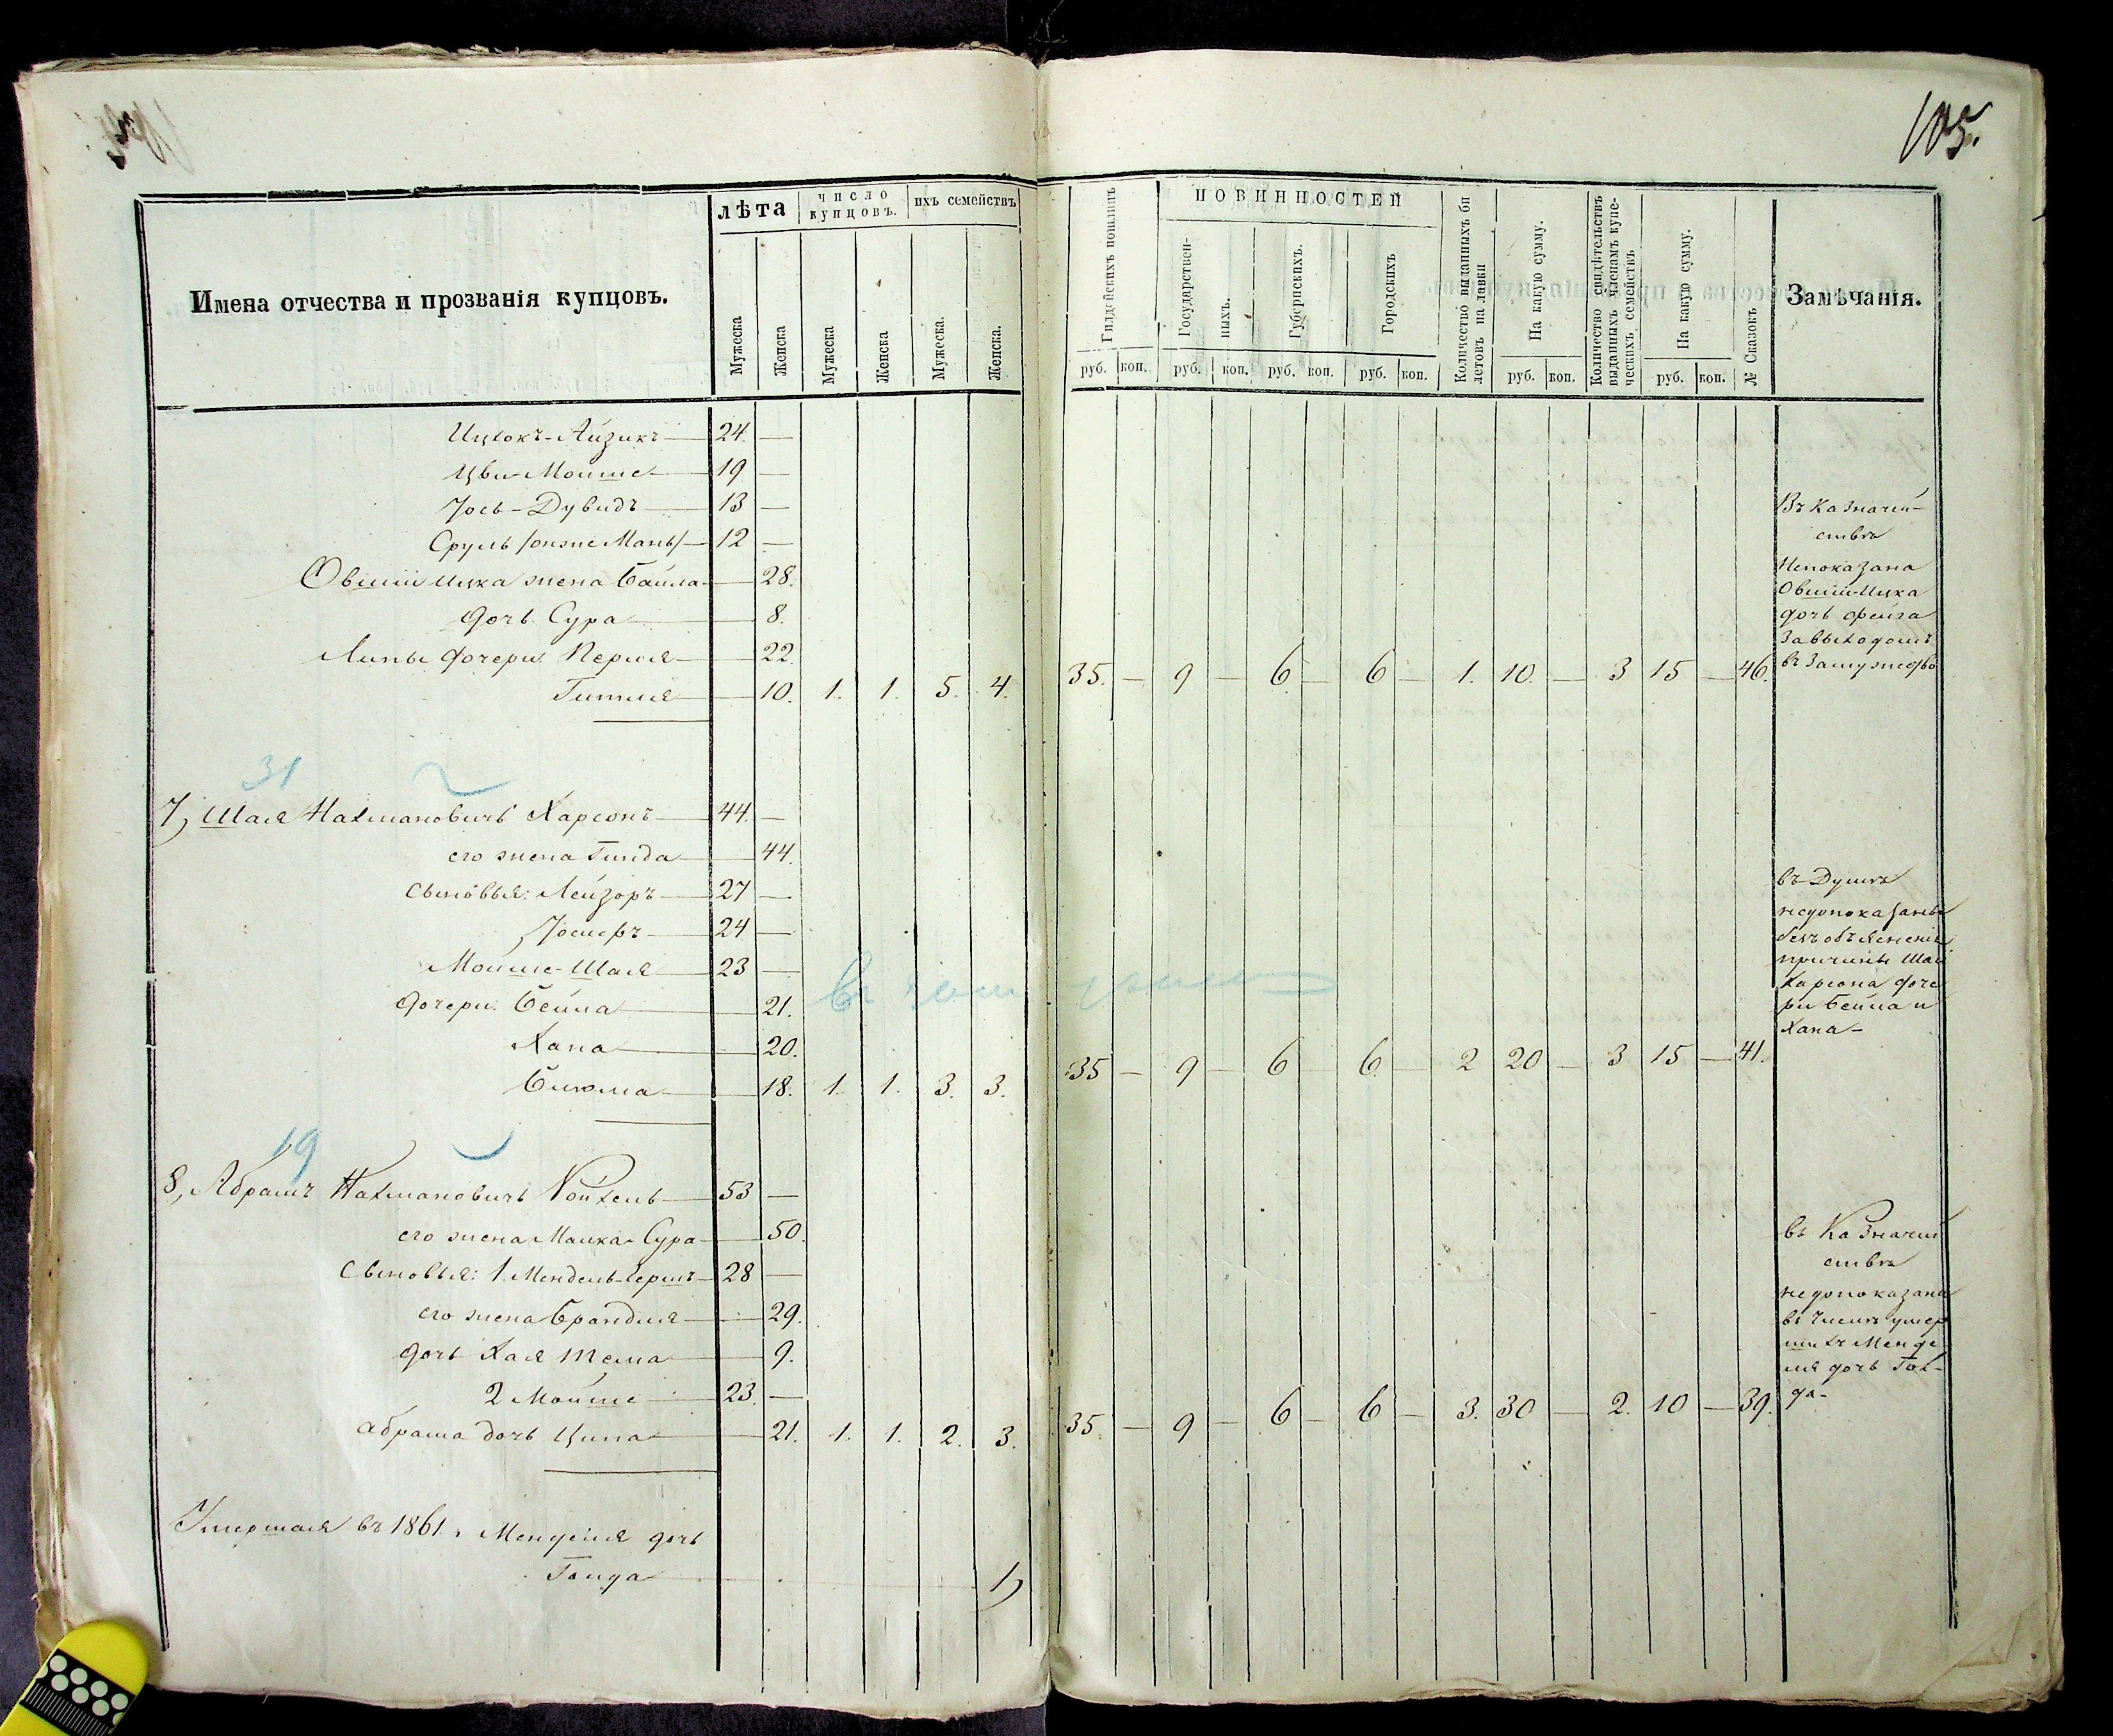 105.
Имена отчества и прозванія купцовъ.
лѣта
число купцовъ.
ихъ семействъ
Мужеска
Женска
Мужеска
Женска
Мужеска.
Женска.
Гилдейскихъ пошлинъ
ПОВИННОСТЕЙ
Государствен-
ныхъ.
Губернскихъ.
Городскихъ
Количество выданныхъ би
летовъ на лавки
На какую сумму.
Количество свидѣтельствъ
выданныхъ членамъ купе-
ческихъ семействъ
На какую сумму.
№ Сказокъ
Замѣчанія.
руб. коп. руб. коп. руб. коп. руб. коп. руб. коп. руб. коп.
Ицхокъ-Айзикъ 24. —
Цви-Мошше 19 —
Іось-Дувидъ 13 —
Сруль /онже Мань/ 12 —
Овшiи Ицка жена Байла — 28.
дочь Сура — 8.
Липы дочери: Перля — 22.
Гитля — 10. 1. 1. 5. 4. 35. — 9 — 6 — 6 — 1. 10. — 3 15 — 46.
Въ Казначей-
ствѣ
Непоказана
Овшiи-Ицка
дочь Фейга
за выходомъ
въ замужедво
31
7, Шая Нахмановичъ Харсонъ 44. —
его жена Гинда — 44.
сыновья: Лейзоръ 27 —
Іосифъ 24 —
Мошше-Шая 23 —
дочери: Бейла — 21.
Хана — 20.
Блюма — 18. 1. 1. 3. 3. 35 — 9 — 6 — 6. — 2 20 — 3 15 — 41.
въ Думѣ
недопоказаны
безъ объясненія
причины Шаи
Харсона доче
ри Бейла и
Хана —
19
8, Абрамъ Нахмановичъ Койхель 53 —
его жена Малка-Сура — 50.
Сыновья: 1. Мендель-Гершъ 28 —
его жена Брандля — 29.
дочь Хая Тема — 9.
2 Мойше 23. —
Абрама дочь Ципа — 21. 1. 1. 2. 3. 35. — 9 — 6 — 6 — 3. 30 — 2. 10 — 39.
въ Казначей
ствѣ
недопоказана
въ числѣ умер
шихъ Менде
ля дочь Гол-
да —
Умершая въ 1861. Менделя дочь
Голда 1)